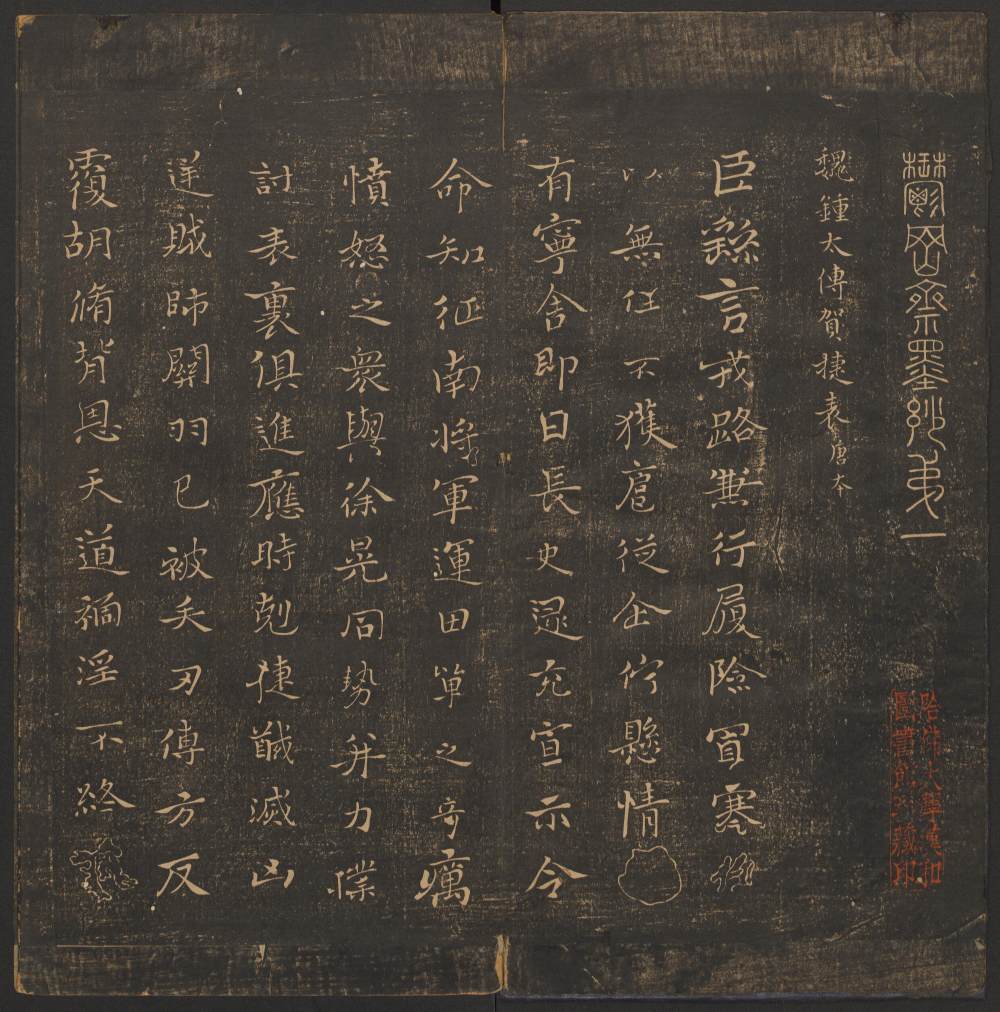 鬱岡齋墨妙第一
魏鍾太傅賀捷表唐本
臣繇言戎路兼行履險冒寒
以無任不獲扈從企佇懸情
有寧舍即日長史逯充宣示令
命知征南將軍運田單之奇厲
憤怒之衆與徐晃同勢并力撲
討表裏俱進應時剋捷馘滅凶
逆賊帥關羽已被矢刃傅方反
覆胡脩背恩天道禍淫不終
哈佛大學漢和
圖書館珍藏印